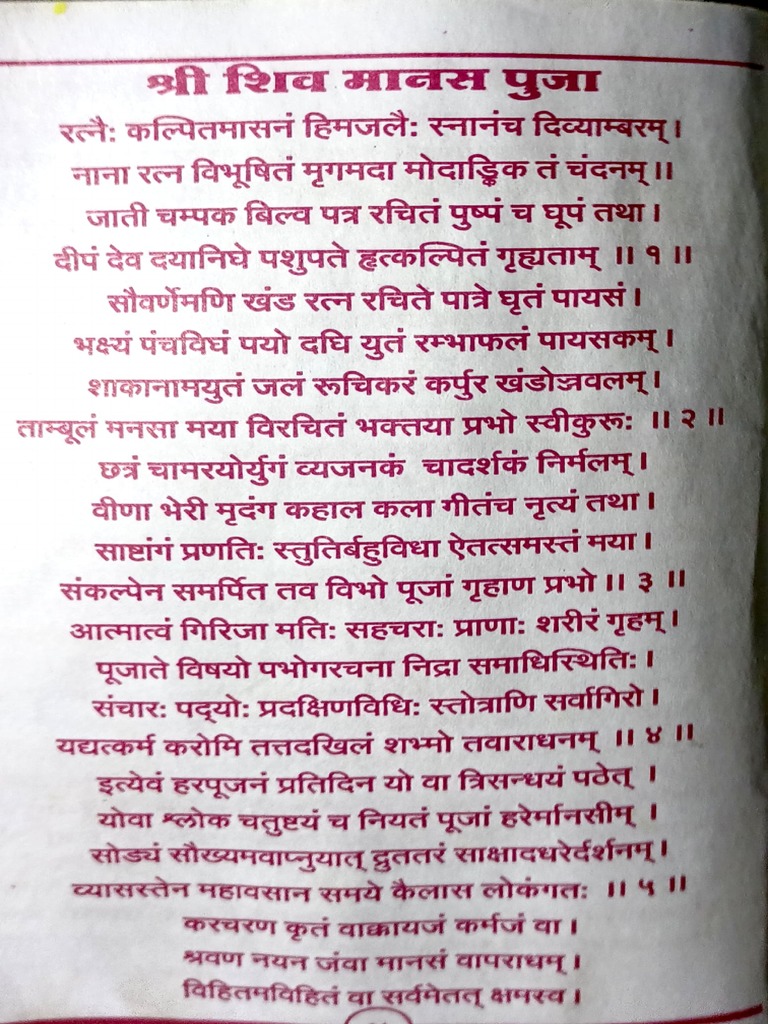 श्री शिव मानस पुजा
रत्नै: कल्पितमासनं हिमजलै: स्नानंच दिव्याम्बरम् ।
नाना रत्न विभूषितं मृगमदा मोदाङ्किक तं चंदनम् ॥
जाती चम्पक बिल्व पत्र रचितं पुष्पं च घूपं तथा ।
दीपं देव दयानिघे पशुपते हृत्कल्पितं गृह्यताम् ॥ १ ॥
सौवर्णेमणि खंड रत्न रचिते पात्रे घृतं पायसं ।
भक्ष्यं पंचविघं पयो दघि युतं रम्भाफलं पायसकम् ।
शाकानामयुतं जलं रूचिकरं कर्पुर खंडोञ्जवलम् ।
ताम्बूलं मनसा मया विरचितं भक्तया प्रभो स्वीकुरू: ॥ २ ॥
छत्रं चामरयोर्युगं व्यजनकं चादर्शकं निर्मलम् ।
वीणा भेरी मृदंग कहाल कला गीतंच नृत्यं तथा ।
साष्टांगं प्रणति: स्तुतिर्बहुविधा ऐतत्समस्तं मया ।
संकल्पेन समर्पित तव विभो पूजां गृहाण प्रभो ॥ ३ ॥
आत्मात्वं गिरिजा मति: सहचरा: प्राणा: शरीरं गृहम् ।
पूजाते विषयो पभोगरचना निद्रा समाधिस्थिति: ।
संचार: पद्यो: प्रदक्षिणविधि: स्तोत्राणि सर्वागिरो ।
यद्यत्कर्म करोमि तत्तदखिलं शभ्मो तवाराधनम् ॥ ४ ॥
इत्येवं हरपूजनं प्रतिदिन यो वा त्रिसन्धयं पठेत् ।
योवा श्लोक चतुष्टयं च नियतं पूजां हरेर्मानसीम् ।
सोड्यं सौख्यमवाप्नुयात् द्रुततरं साक्षादधरेर्दर्शनम् ।
व्यासस्तेन महावसान समये कैलास लोकंगत: ॥ ५ ॥
करचरण कृतं वाक्कायजं कर्मजं वा ।
श्रवण नयन जंवा मानसं वापराधम् ।
विहितमविहितं वा सर्वमेतत् क्षमस्व ।